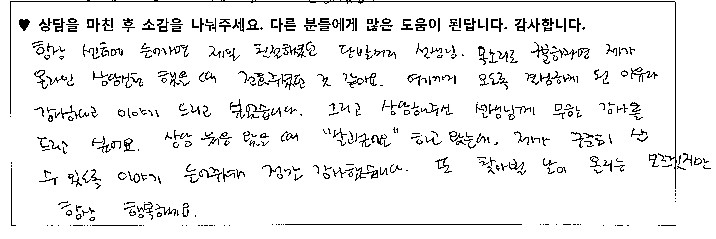 ♥ 상담을 마친 후 소감을 나눠주세요. 다른 분들에게 많은 도움이 된답니다. 감사합니다.
항상 센터에 들어가면 제일 친절하였던 단발머리 선생님. 목소리로 제가
온라인 상담신청 했을 때 전화주셨던 것 같아요. 여기까지 오도록 결정하게 된 이유라
감사하다고 이야기 드리고 싶었습니다. 그리고 상담해주신 선생님께 무한 감사를
드리고 싶어요. 상담 받을 때 "살리는거" 하고 있는데, 제가 살
수 있도록 이야기 들어주셔서 정말 감사했습니다. 또 찾아뵐 날이 올지는 모르겠지만
항상 행복하세요.